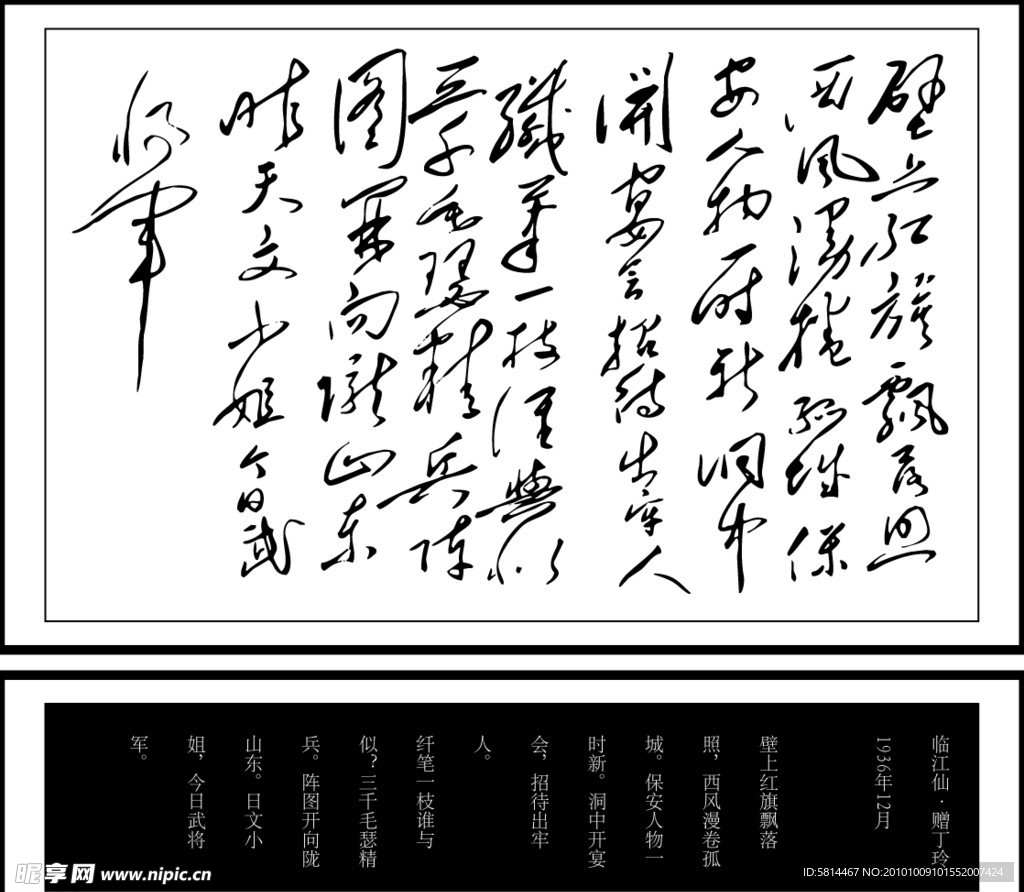 壁上红旗飘落照
西风漫捲孤城保
安人物一时新洞中
開宴会招待出牢人
纖笔一枝谁與似
三千毛瑟精兵陣
图開向隴山东
昨天文小姐今日武
将军
临江仙·赠丁玲
1936年12月
壁上红旗飘落
照，西风漫卷孤
城。保安人物一
时新。洞中开宴
会，招待出牢
人。
纤笔一枝谁与
似？三千毛瑟精
兵。阵图开向陇
山东。日文小
姐，今日武将
军。
昵享网 www.nipic.cn
ID:5814467 NO:20101009101552007424